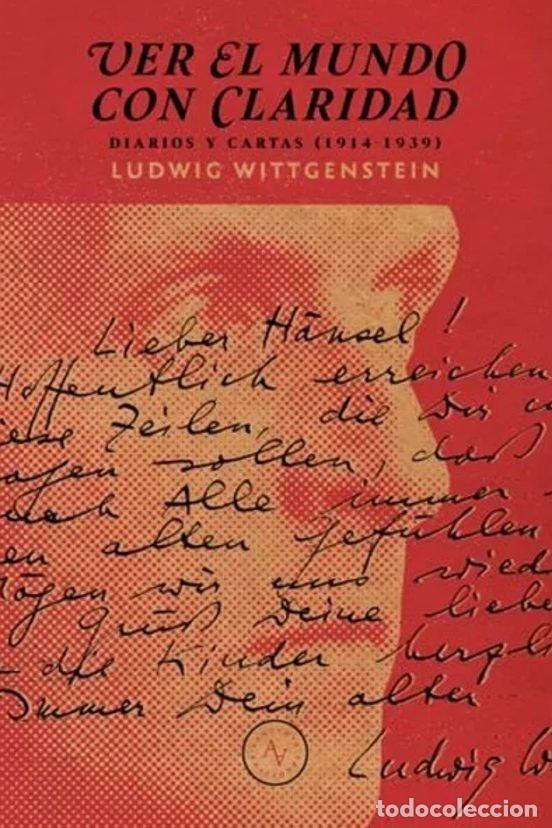 VER EL MUNDO
CON CLARIDAD
DIARIOS Y CARTAS (1914-1939)
LUDWIG WITTGENSTEIN
Lieber Hänsel!
Hoffentlich erreichen
iese Zeilen, die Dir
agen sollen, daß
Alle immer
en alten Gefühlen
Mögen wir uns wied
Grüß Deine liebe
die Kinder herzli
Immer Dein alter
Ludwig W
todocoleccion